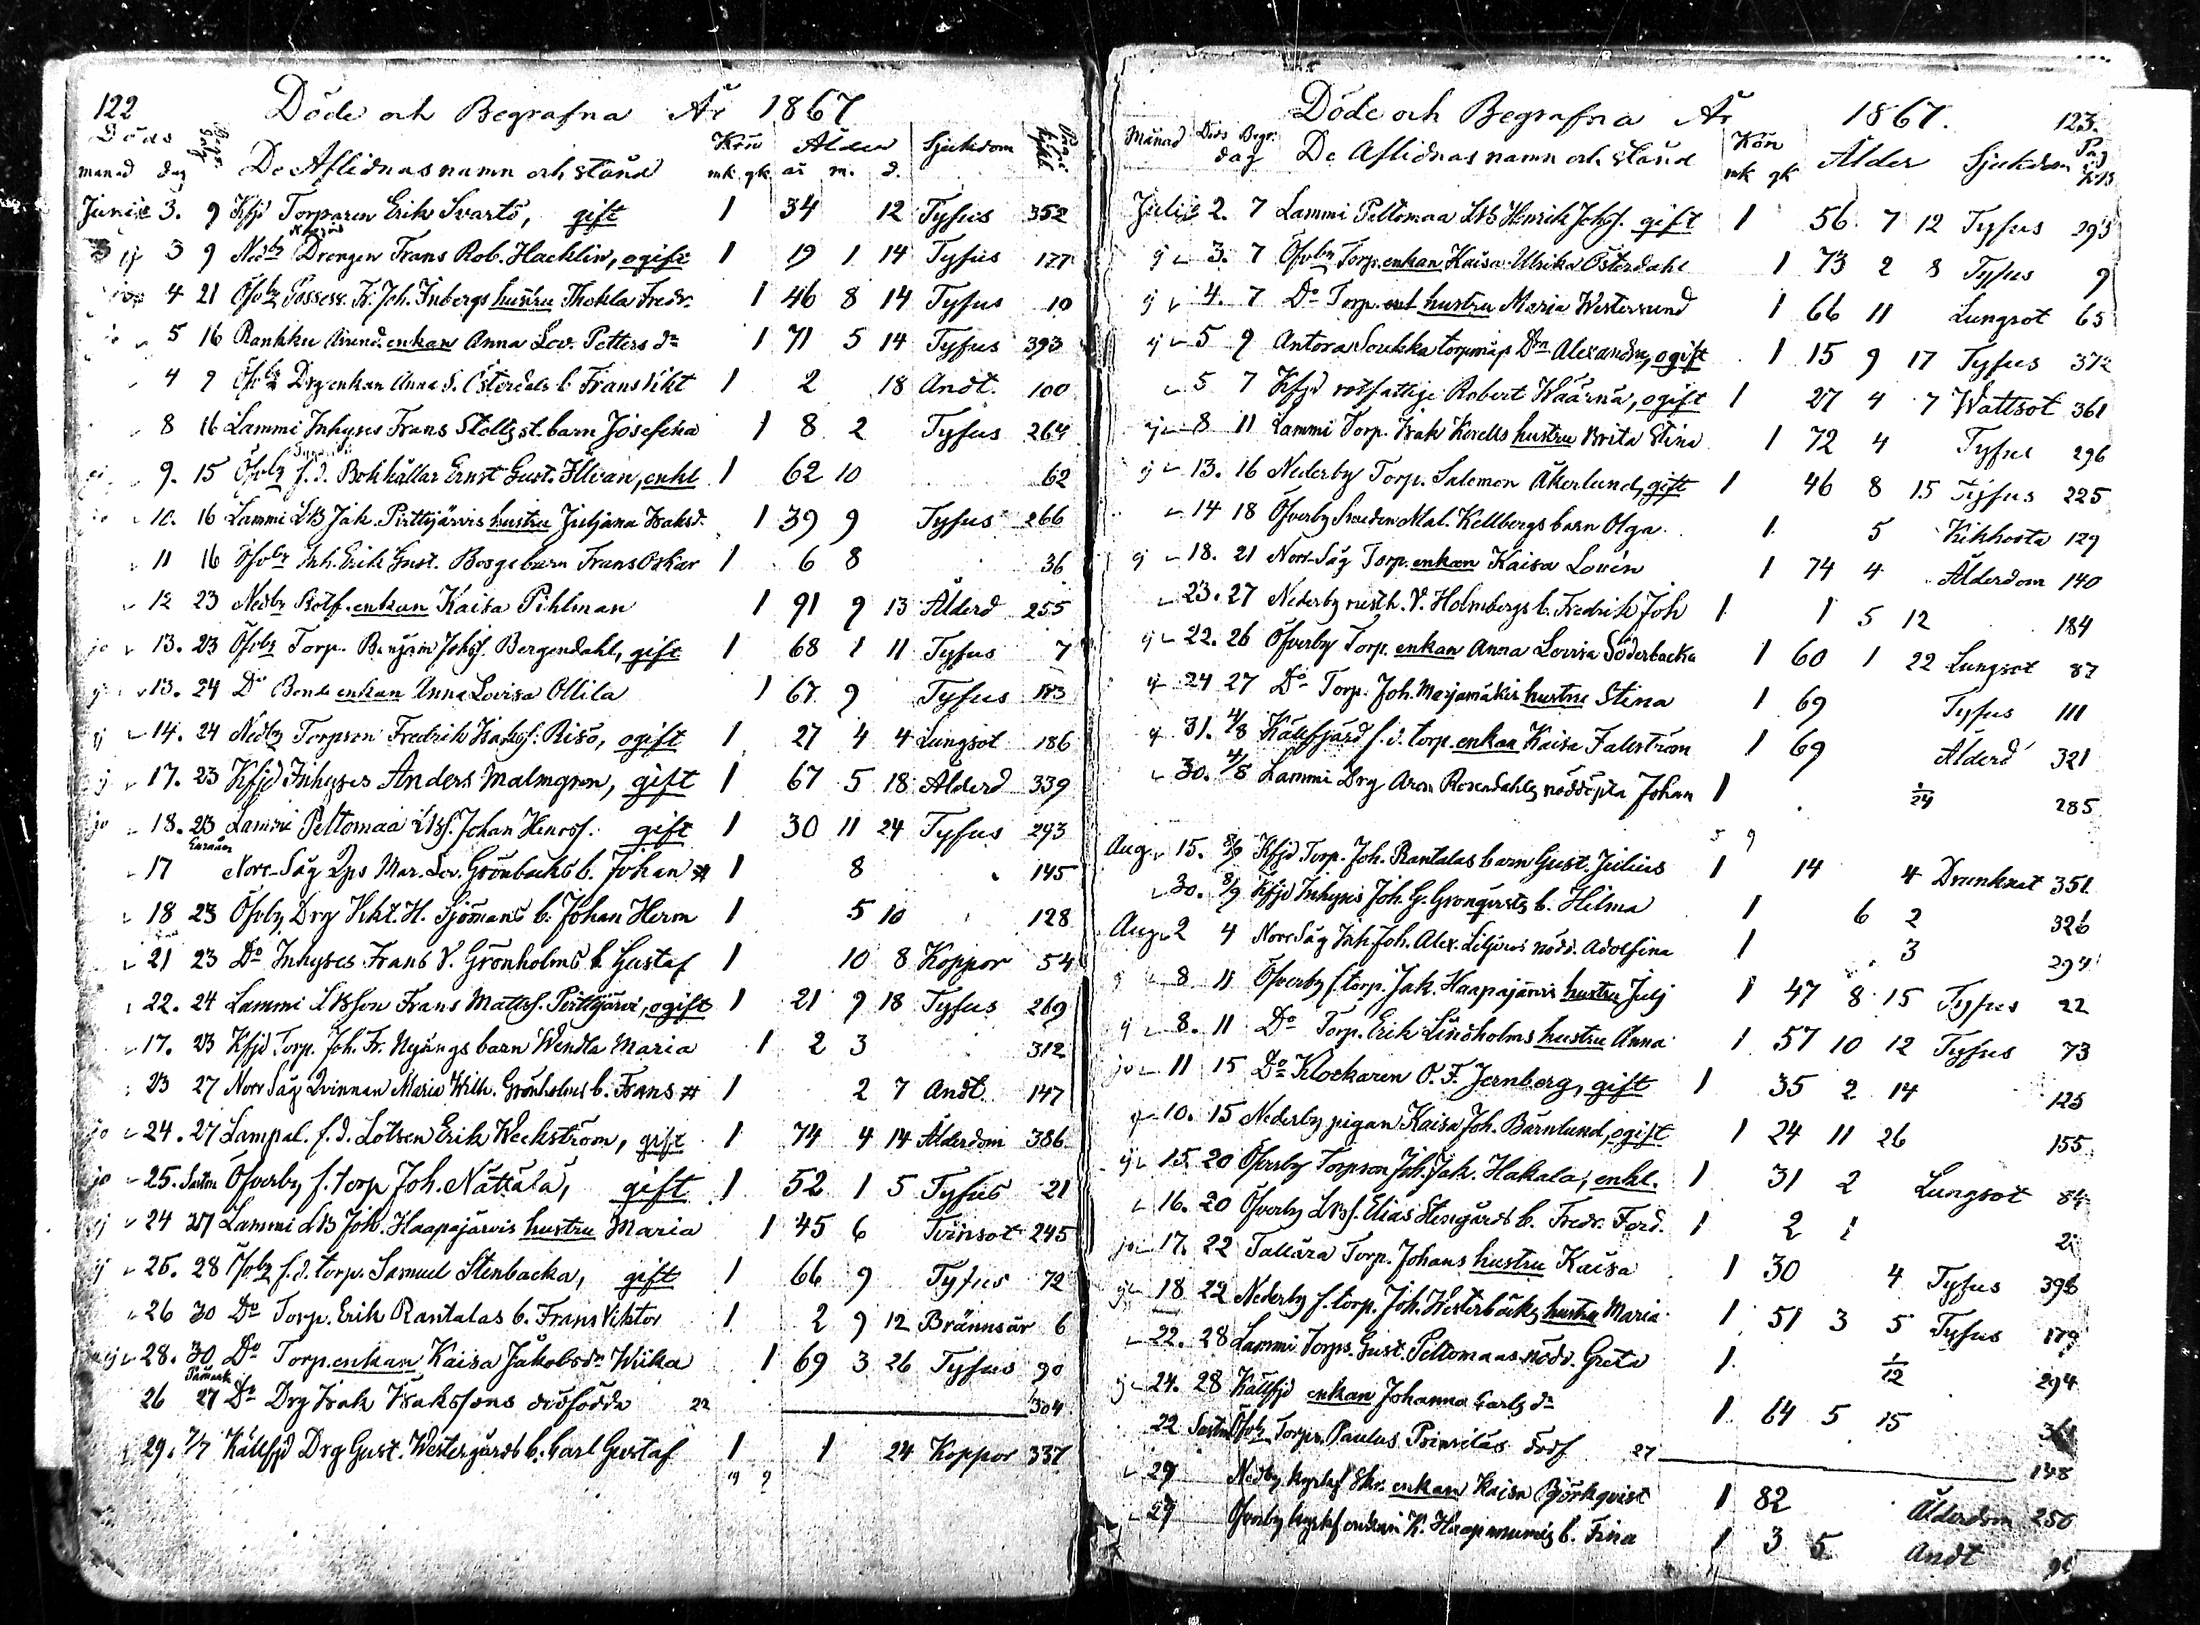 122 Döde och Begrafna År 1867
Döds Begr. dag Kön Ålder Sjukdom
månad dag De Aflidnas namn och stånd mk qk år m. d.
Junii 3. 9 Kfjd Torparen Erik Svartö, gift 1 34 12 Tyfus 352
3 9 Nedby Drengen Frans Rob. Hacklin, ogift 1 19 1 14 Tyfus 177
4 21 Öfvby Possess. K. Joh. Inbergs hustru Thekla Fredr. 1 46 8 14 Tyfus 10
5 16 Rankku enkan Anna Lov. Petters dr 1 71 5 14 Tyfus 393
4 9 Öfvby Drg enkan Anna S. Österdals b. Frans Vikt 1 2 18 Andt. 100
8 16 Lammi Inhyses Frans Stells st. barn Josefina 1 8 2 Tyfus 264
9. 15 Öfvby f.d. Bokhållar Ernst Gust. Illvan, enkl 1 62 10 62
10. 16 Lammi LB Jak. Pirttijärvis hustru Juljana Isaksd. 1 39 9 Tyfus 266
11 16 Öfvby Inh. Erik Gust. Borgs barn Frans Oskar 1 6 8 36
12 23 Nedby Rotf. enkan Kaisa Pihlman 1 91 9 13 Ålderd 255
13. 23 Öfvby Torp. Benjam Johsf. Bergendahl, gift 1 68 1 11 Tyfus 7
13. 24 Do Bonde enkan Anna Lovisa Ollila 1 67 9 Tyfus 183
14. 24 Nedby Torpson Fredrik Isaksf. Risö, ogift 1 27 4 4 Lungsot 186
17. 23 Kfjd Inhyses Anders Malmgren, gift 1 67 5 18 Ålderd 339
18. 23 Lammi Peltomaa LBsf. Johan Henrsf. gift 1 30 11 24 Tyfus 293
17 Norr-Såg Qps Mar. Lov. Grönbacks b. Johan # 1 8 145
18 23 Öfvby Drg Vikt. H. Sjömans b. Johan Herm 1 5 10 128
21 23 Do Inhyses Frans V. Grönholms b. Gustaf 1 10 8 Koppor 54
22. 24 Lammi LBson Frans Mattsf. Pirttijärvi, ogift 1 21 9 18 Tyfus 269
17. 23 Kfjd Torp. Joh. Fr. Nyängs barn Wendla Maria 1 2 3 312
23 27 Norr Såg Qvinnan Maria Wilh. Grönholms b. Frans # 1 2 7 Andt. 147
24. 27 Lampal. f.d. Lotsen Erik Weckström, gift 1 74 4 14 Ålderdom 386
25. Öfverby f. torp Joh. Nättälä, gift 1 52 1 5 Tyfus 21
24 27 Lammi LB Joh. Haapajärvis hustru Maria 1 45 6 Tvinsot 245
25. 28 Öfvby f.d. torp. Samuel Stenbacka, gift 1 66 9 Tyfus 72
26 30 Do Torp. Erik Rantalas b. Frans Viktor 1 2 9 12 Brännsår 6
28. 30 Do Torp. enkan Kaisa Jakobsdr Wiika 1 69 3 26 Tyfus 90
26 27 Do Drg Isak Isakssons dödfödda 22 304
29. 7/7 Källfjd Drg Gust. Westergårds b. Carl Gustaf 1 1 24 Koppor 337
19 9
Döde och Begrafna År 1867. 123.
Månad Döds Begr. dag De Aflidnas namn och stånd Kön mk qk Ålder Sjukdom
Julii 2. 7 Lammi Peltomaa LB Henrik Johsf. gift 1 56 7 12 Tyfus 293
3. 7 Öfvby Torp. enkan Kaisa Ulrika Österdahl 1 73 2 8 Tyfus 9
4. 7 Do Torp. hustru Maria Westersund 1 66 11 Lungsot 65
5 9 Antora Soukka torpmäg Drn Alexandra, ogift 1 15 9 17 Tyfus 372
5 7 Kfjd rotfattige Robert Waärnä, ogift 1 27 4 7 Wattsot 361
8 11 Lammi Torp. Isak Korells hustru Brita Stina 1 72 4 Tyfus 296
13. 16 Nederby Torp. Salomon Åkerlund, gift 1 46 8 15 Tyfus 225
14 18 Öfverby Smeden Mat. Kellbergs barn Olga 1. 5 Kikhosta 129
18. 21 Norr-Såg Torp. enkan Kaisa Lovén 1 74 4 Ålderdom 140
23. 27 Nederby rusth. V. Holmbergs b. Fredrik Joh 1 1 5 12 184
22. 26 Öfverby Torp. enkan Anna Lovisa Söderbacka 1 60 1 22 Lungsot 87
24 27 Do Torp. Joh. Marjamäkis hustru Stina 1 69 Tyfus 111
31. 4/8 Källfjärd f.d. torp. enkan Kaisa Falström 1 69 Ålderd 321
30. 4/8 Lammi Drg Aron Rosendahls nöddöpta Johan 1 1/24 285
5 9
Aug. 15. 8/9 Kfjd Torp. Joh. Rantalas barn Gust. Julius 1 14 4 Drunknat 351
30. 8/9 Kfjd Inhyses Joh. G. Gronqvists b. Hilma 1 6 2 326
Aug. 2 4 Norr Såg Inh Joh. Alex. Liljeros nödd. Adolfina 1 3 294
8 11 Öfverby f. torp. Jak. Haapajärvis hustru Julj 1 47 8 15 Tyfus 22
8. 11 Do Torp. Erik Lindholms hustru Anna 1 57 10 12 Tyfus 73
11 15 Do Klockaren O. F. Jernberg, gift 1 35 2 14 125
10. 15 Nederby pigan Kaisa Joh. Bärnlund, ogift 1 24 11 26 155
15. 20 Öfverby Torpson Joh. Jak. Hakala, enkl. 1 31 2 Lungsot 84
16. 20 Öfverby LBsf. Elias Stengårds b. Fredr. Ferd. 1 2 1
17. 22 Tallära Torp. Johans hustru Kaisa 1 30 4 Tyfus 396
18 22 Nederby f. torp. Joh. Westerbacks hustru Maria 1 51 3 5 Tyfus 179
22. 28 Lammi Torps. Gust. Peltomaas nödd. Greta 1. 1/12 294
24. 28 Källfjd enkan Johanna Carls dr 1. 64 5 15
22 Öfvby Torpr. Paulus Prinsiläs dödf 27 148
29 Nedby enkan Kaisa Björkqvist 1 82 Ålderdom 250
29 Öfverby enkan K. b. Fina 1 3 5 Andt